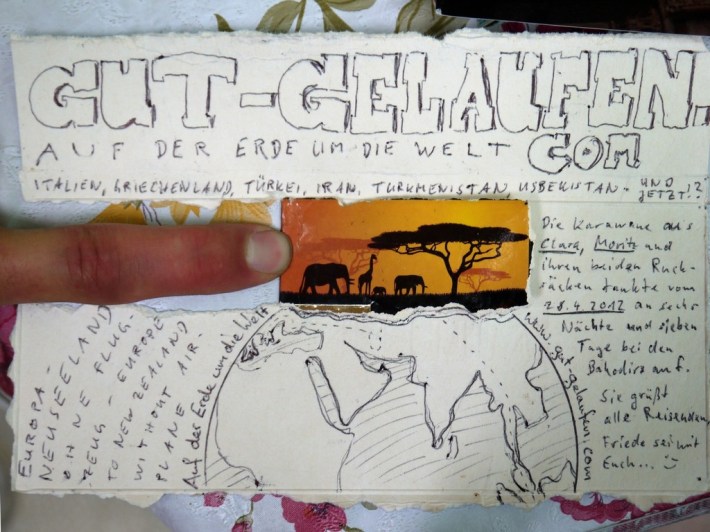 GUT-GELAUFEN.
COM
AUF DER ERDE UM DIE WELT
ITALIEN, GRIECHENLAND, TÜRKEI, IRAN, TURKMENISTAN, USBEKISTAN - UND
JETZT!?
Die Karawane aus
Clara, Moritz und
ihren beiden Ruck-
säcken tankte vom
28.4.2012 an sechs
Nächte und sieben
Tage bei den
Bahodirs auf.
Sie grüßt
alle Reisenden,
Friede sei mit
Euch...
EUROPA-
NEUSEELAND
OHNE FLUG-
ZEUG - EUROPE
TO NEW ZEALAND
WITHOUT AIR-
PLANE
Auf der Erde um die Welt
www.gut-gelaufen.com